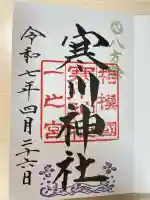 八方除
寒川神社
相模國
一之宮
令和七年四月二十六日